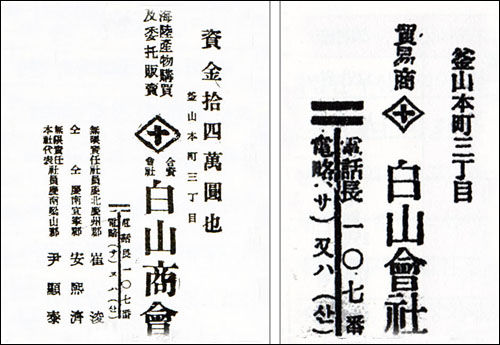 資金拾四萬圓也
釜山本町三丁目
海陸產物購買
及委托販賣
十
合資會社 白山商會
電話長一〇七番
電略(サ)又ハ(산)
無限責任社員慶北慶州郡 崔浚
仝 仝 慶南宜寧郡 安熙濟
無限責任
本社代表 社員 尹顯泰
釜山本町三丁目
貿易商
十
白山會社
電話長 一〇七番
電略(サ)又ハ(산)